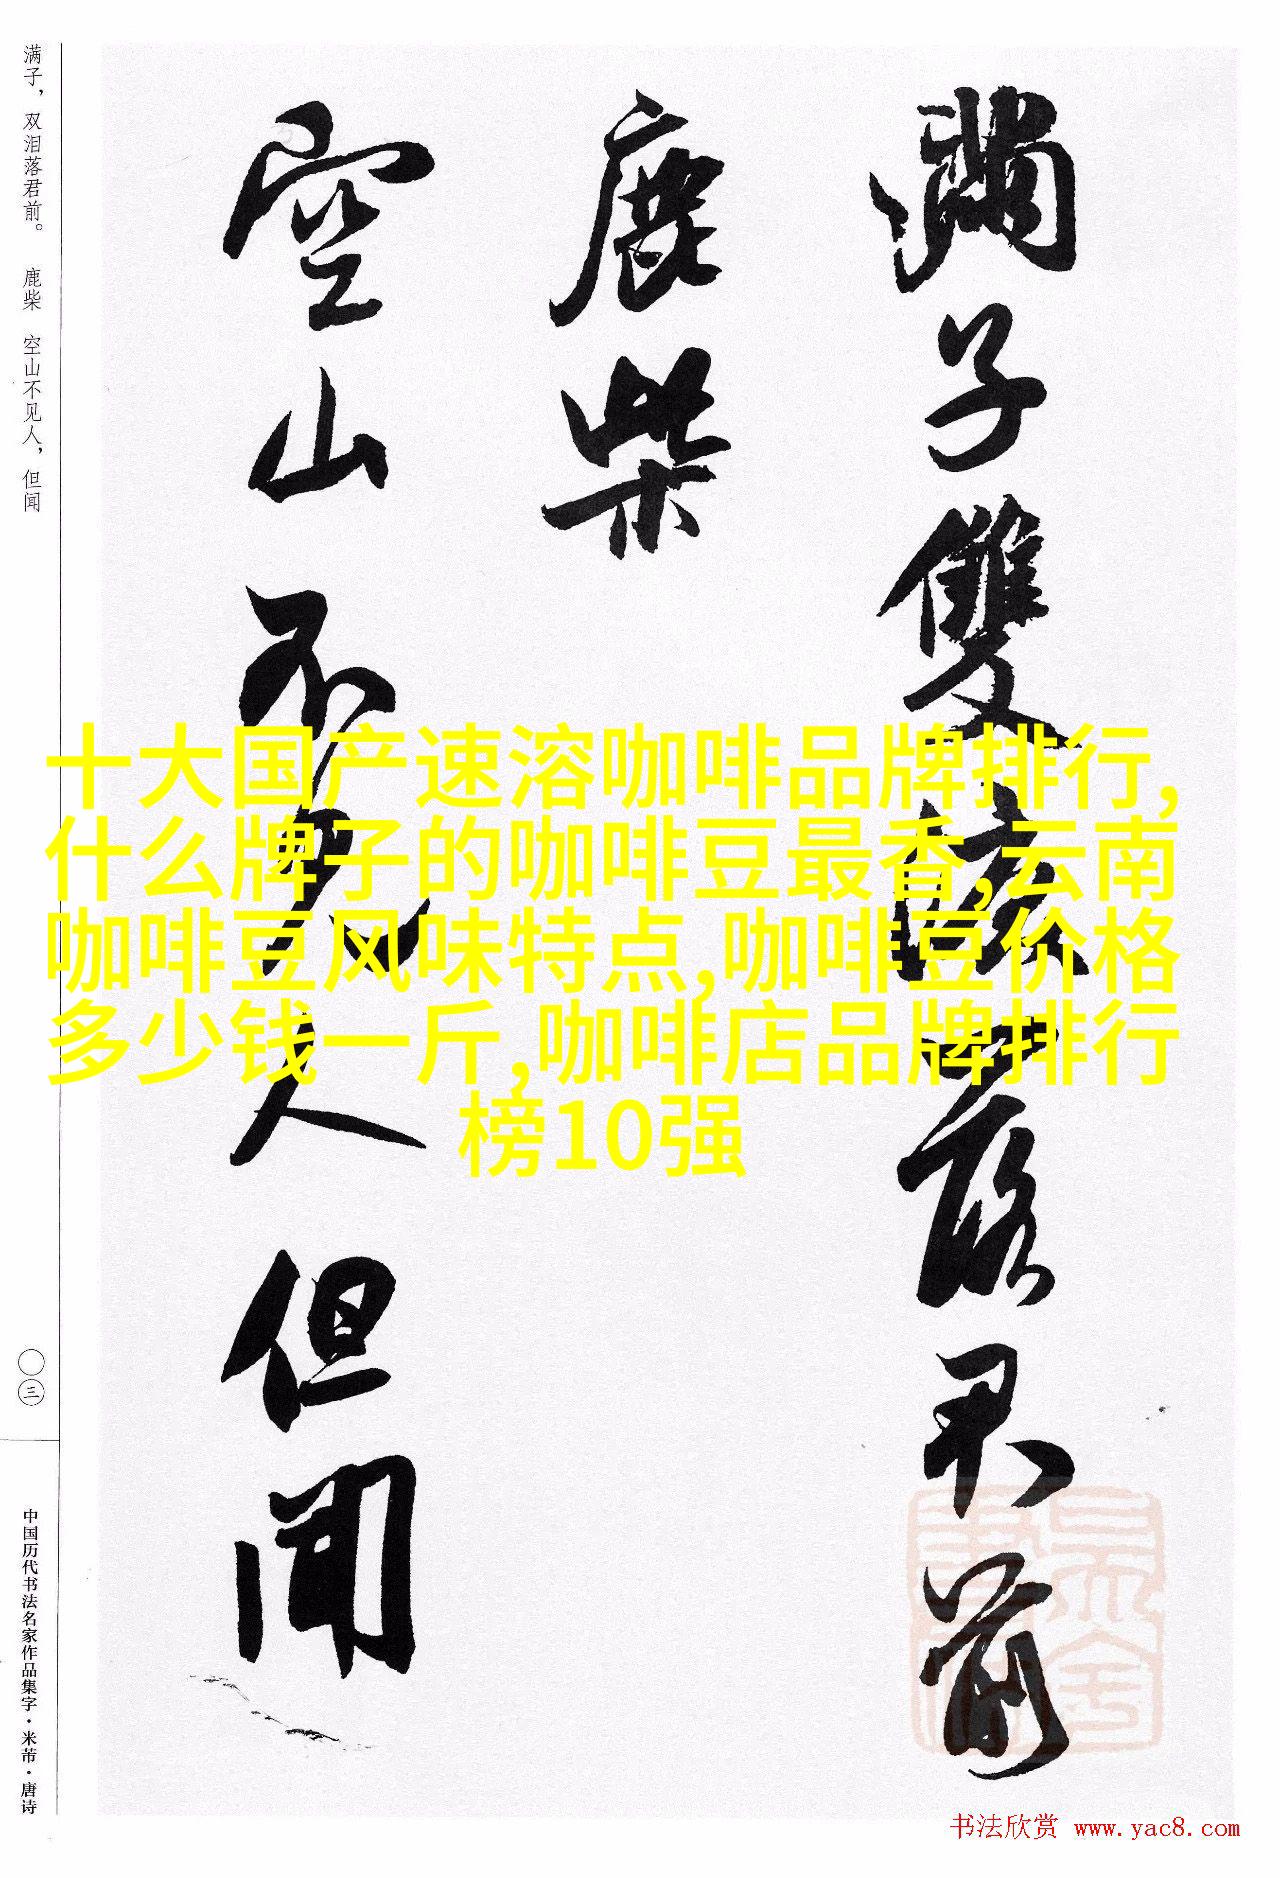 满子，双泪落君前。 鹿柴 空山不见人，但闻
滿子雙淚落君前
鹿柴
空山不見人但聞
十大国产速溶咖啡品牌排行,
什么牌子的咖啡豆最香,云南
咖啡豆风味特点,咖啡豆价格
多少钱一斤,咖啡店品牌排行
榜10强
〇三
中国历代书法名家作品集字·米芾·唐诗
书法欣赏 www.yac8.com